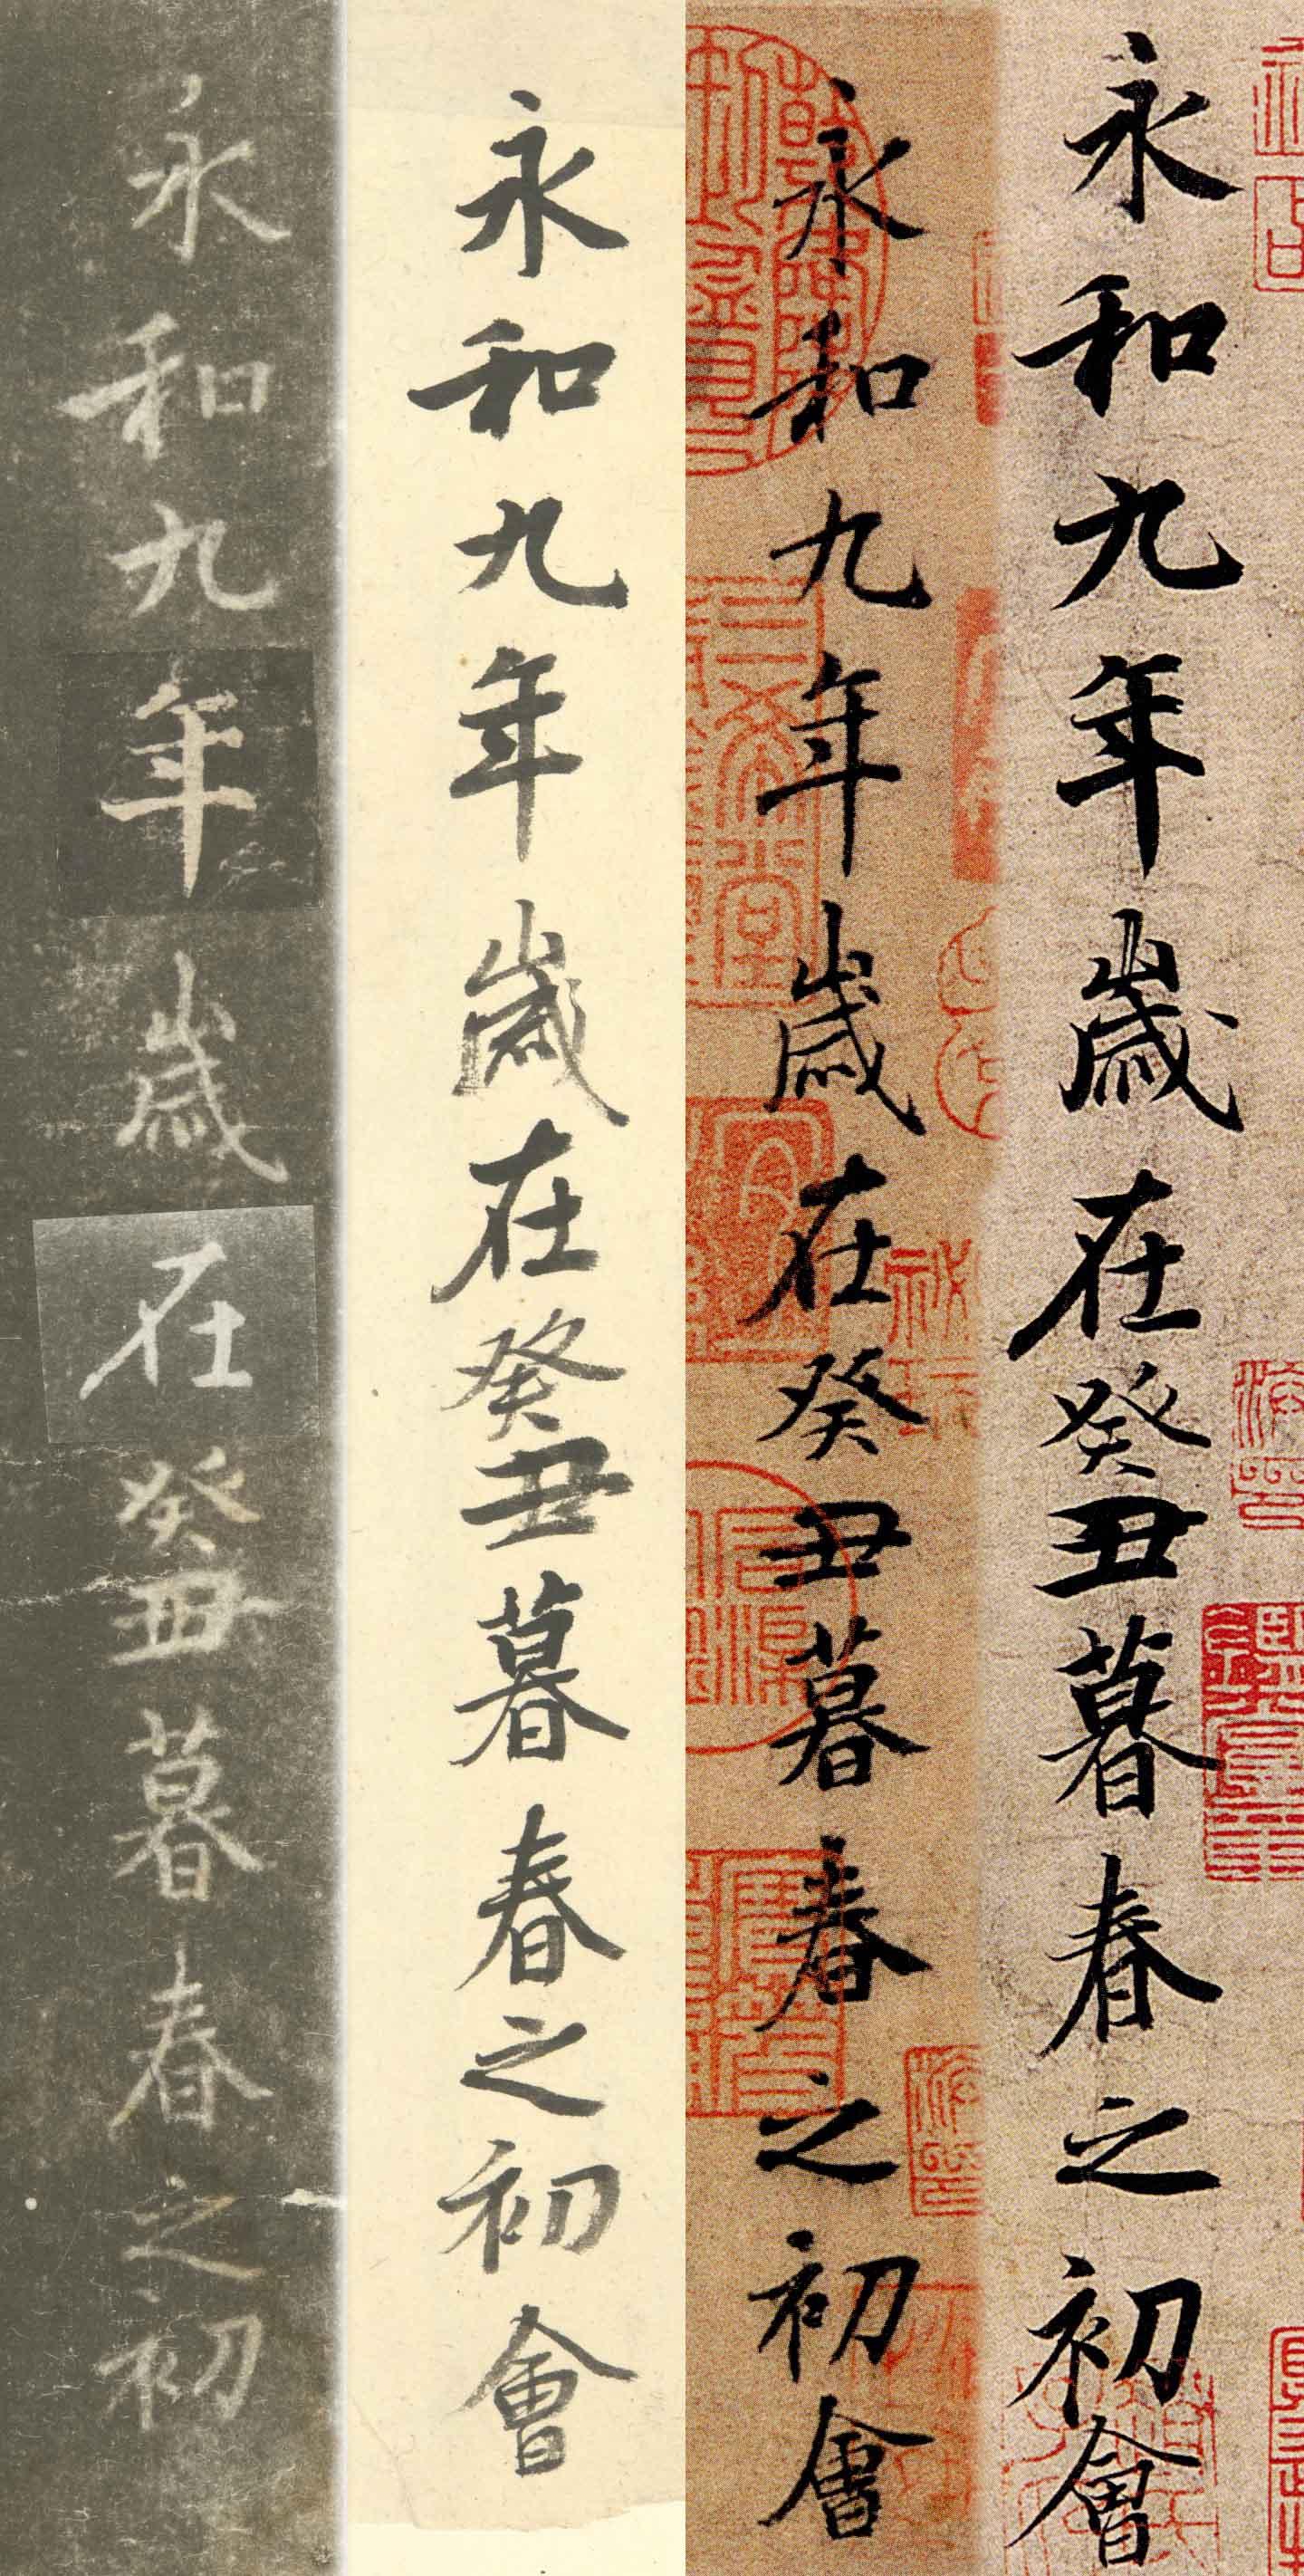 永和九年歲在癸丑暮春之初會
永和九年歲在癸丑暮春之初會
永和九年歲在癸丑暮春之初會
永和九年歲在癸丑暮春之初